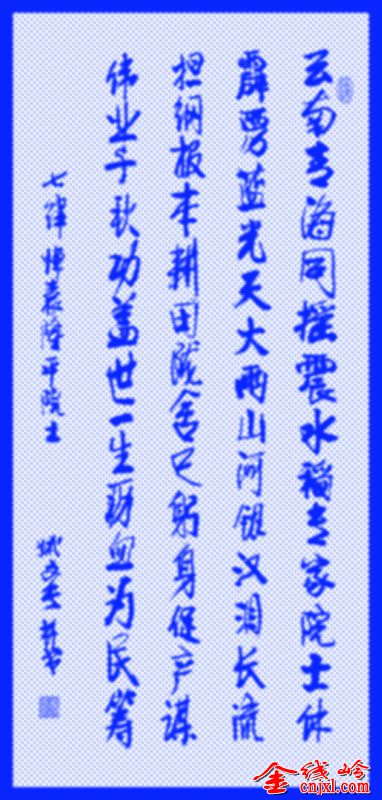 云南青海同摇震水稻专家院士休
霹雳蓝光天大雨山河银汉泪长流
担纲报本耕田陇舍己躬身促产谋
伟业千秋功盖世一生血为民筹
七律悼袁隆平院士
书
金线岭
cnjxl.com